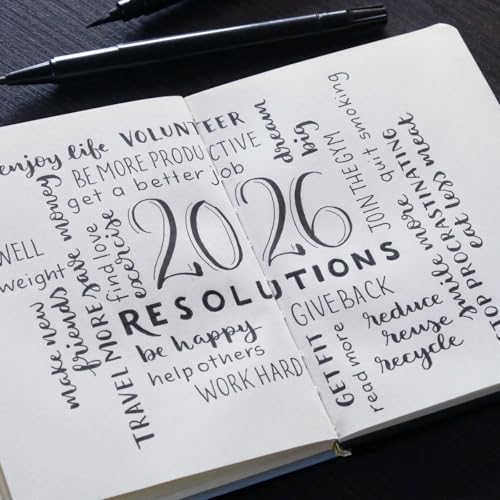 enjoy life
VOLUNTEER
BE MORE PRODUCTIVE
get a better job
dream
big
JOIN THE GYM
quit smoking
STOP PROCRASTINATING
eat less meat
smile more
WELL
weight
make new
friends
save money
TRAVEL MORE
find love
exercise
2026
RESOLUTIONS
be happy
help others
WORK HARD
GIVE BACK
GET FIT
read more
reduce
reuse
recycle